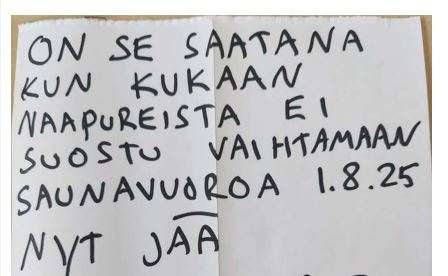 ON SE SAATANA
KUN KUKAAN
NAAPUREISTA EI
SUOSTU VAIHTAMAAN
SAUNAVUOROA 1.8.25
NYT JÄÄ